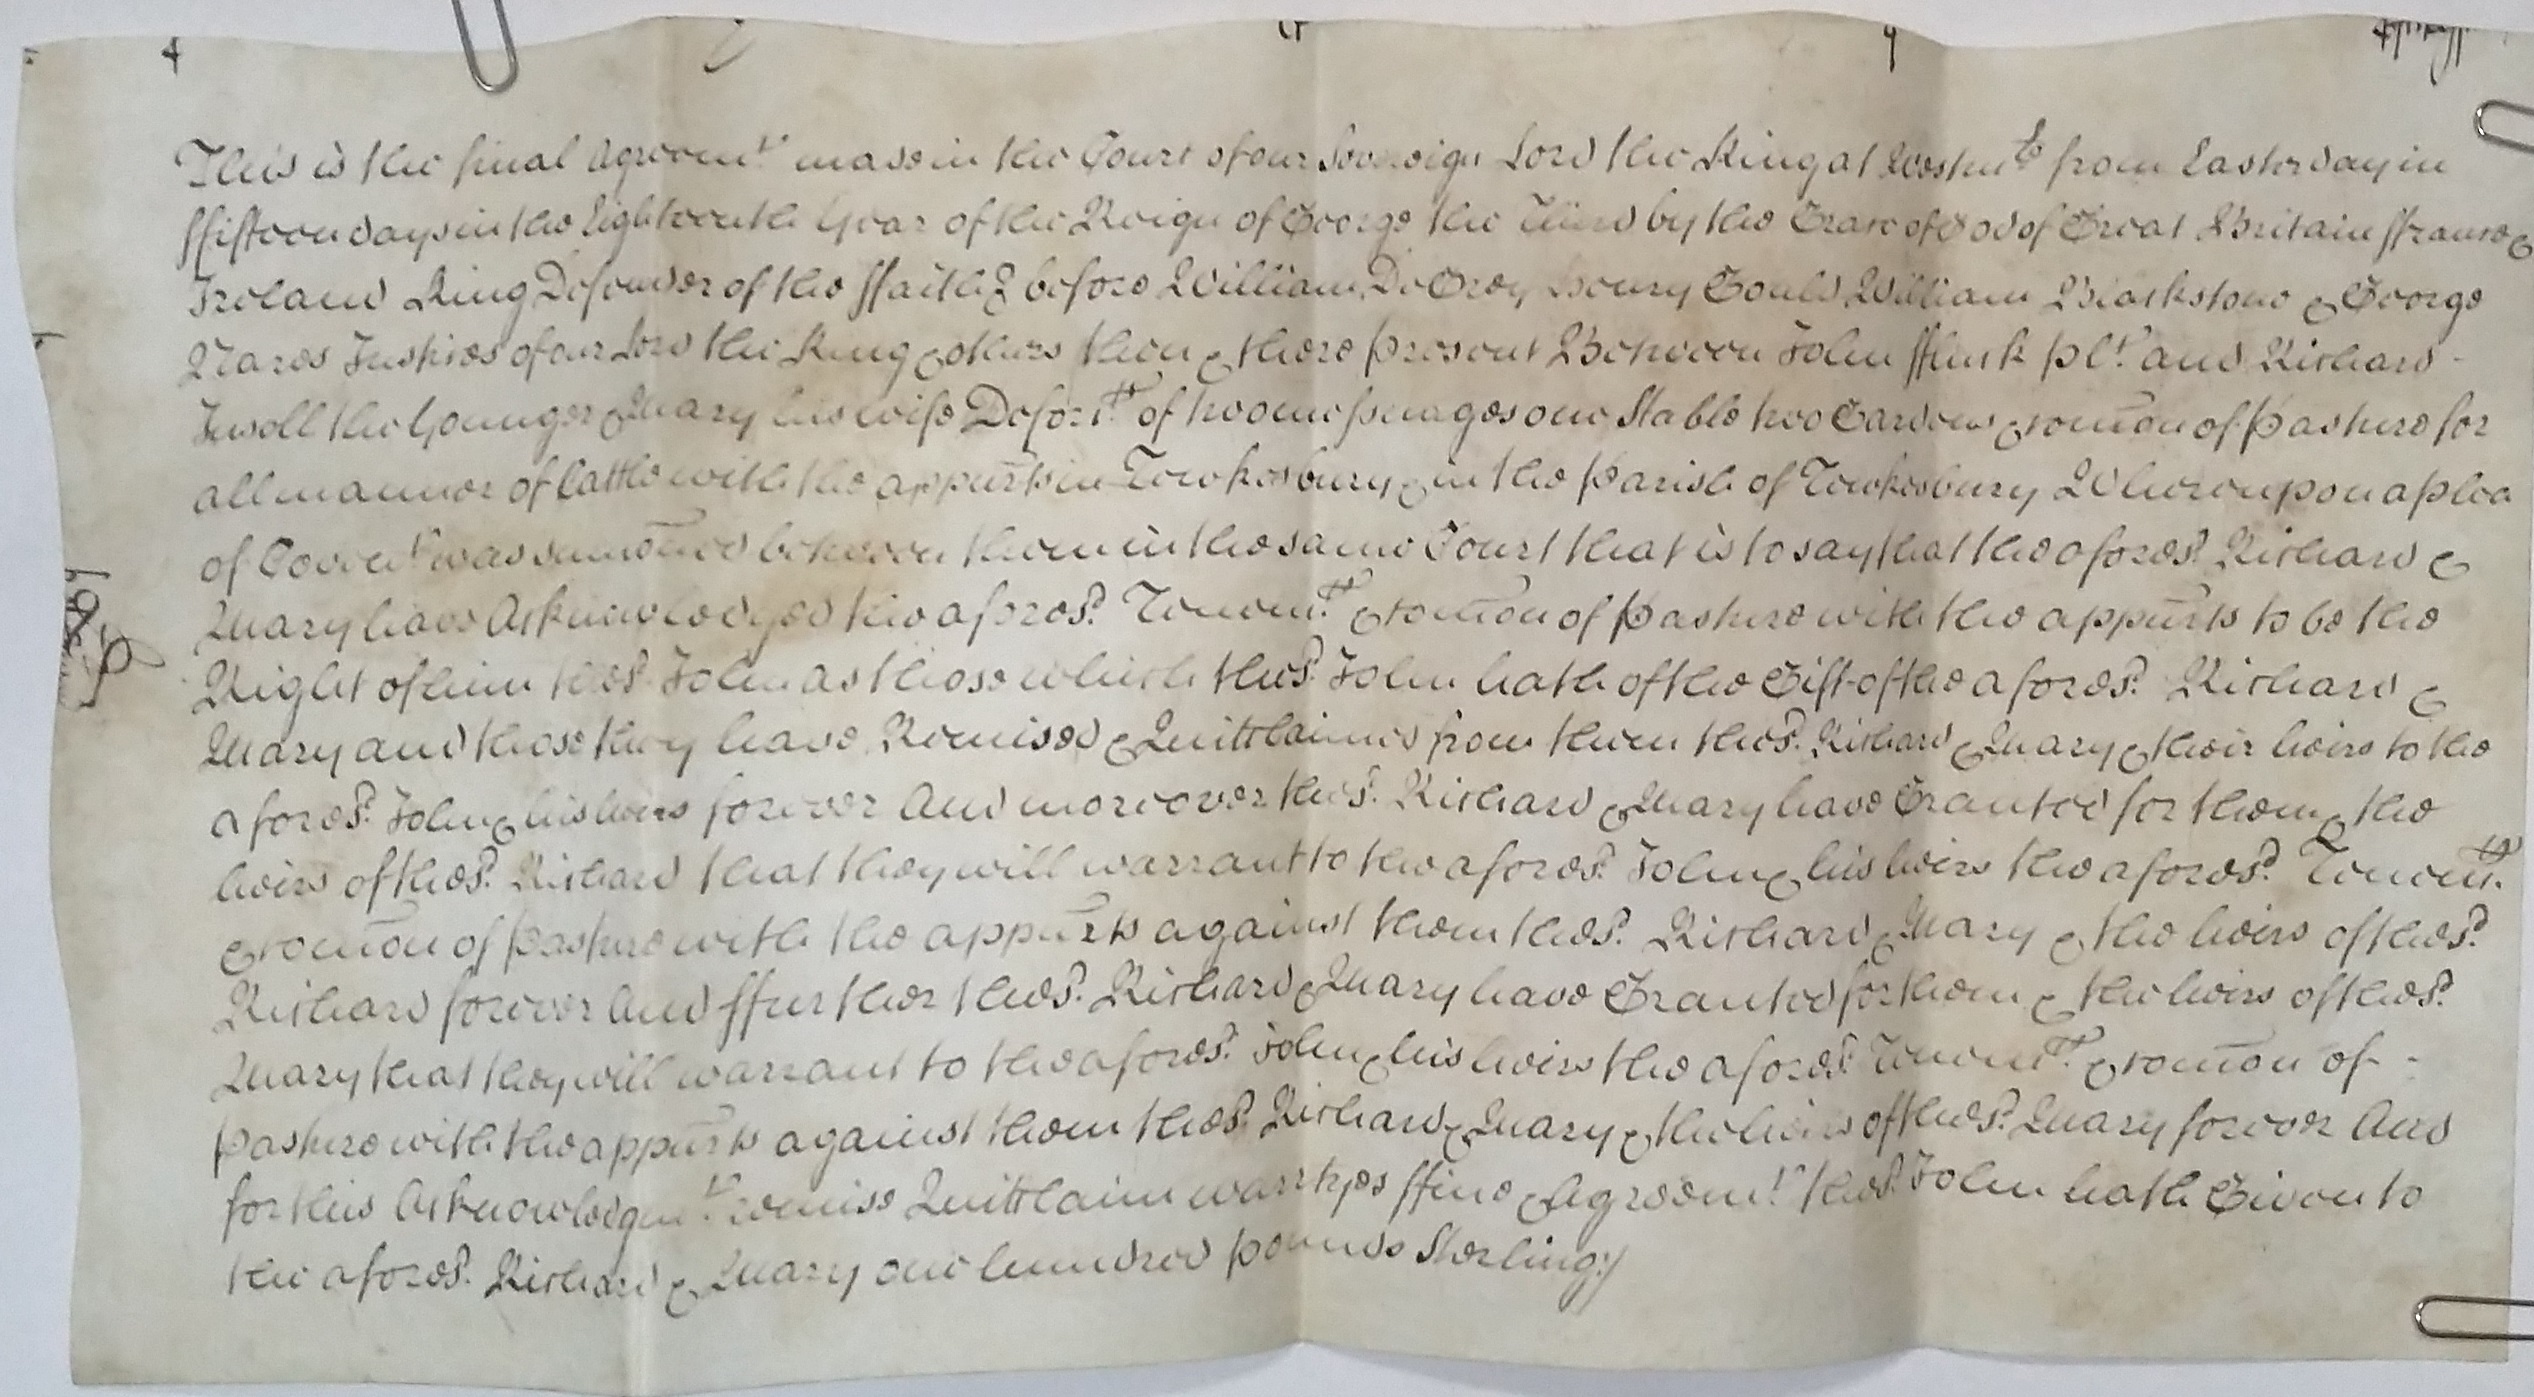 This is the final Agreemt. made in the Court of our Sovereign Lord the King at Westmr from Easter day in
ffifteen days in the Eighteenth Year of the Reign of George the Third by the Grace of God of Great Britain ffrance &
Ireland King Defender of the ffaith &c before William De Grey Henry Gould William Blackstone & George
Nares Justices of our Lord the King & others then & there present Between John fflurk plt. and Richard -
Insoll the Younger & Mary his wife Defortts. of two messuages one Stable two Gardens & com̄on of Pasture for
all manner of Cattle with the appurts in Tewkesbury & in the Parish of Tewkesbury Whereupon a plea
of Covent. was sum̄oned between them in the same Court that is to say that the aforesd. Richard &
Mary have Acknowledged the aforesd. Tenemts. & com̄on of Pasture with the appurts to be the
Right of him the sd. John as those which the sd. John hath of the Gift of the aforesd. Richard &
Mary and those they have Remised & Quitclaimed from them the sd. Richard & Mary & their heirs to the
aforesd. John & his heirs forever And moreover the sd. Richard & Mary have Granted for them & the
heirs of the sd. Richard that they will warrant to the aforesd. John & his heirs the aforesd. Tenemts.
& com̄on of pasture with the appurts against them the sd. Richard & Mary & the heirs of the sd.
Richard forever And ffurther the sd. Richard & Mary have Granted for them & the heirs of the sd.
Mary that they will warrant to the aforesd. John & his heirs the aforesd. Tenemts. & com̄on of -
pasture with the appurts against them the sd. Richard & Mary & the heirs of the sd. Mary forever And
for this Acknowledgmt. remise Quitclaim warrtyes ffine & Agreemt. the sd. John hath Given to
the aforesd. Richard & Mary one hundred pounds Sterling